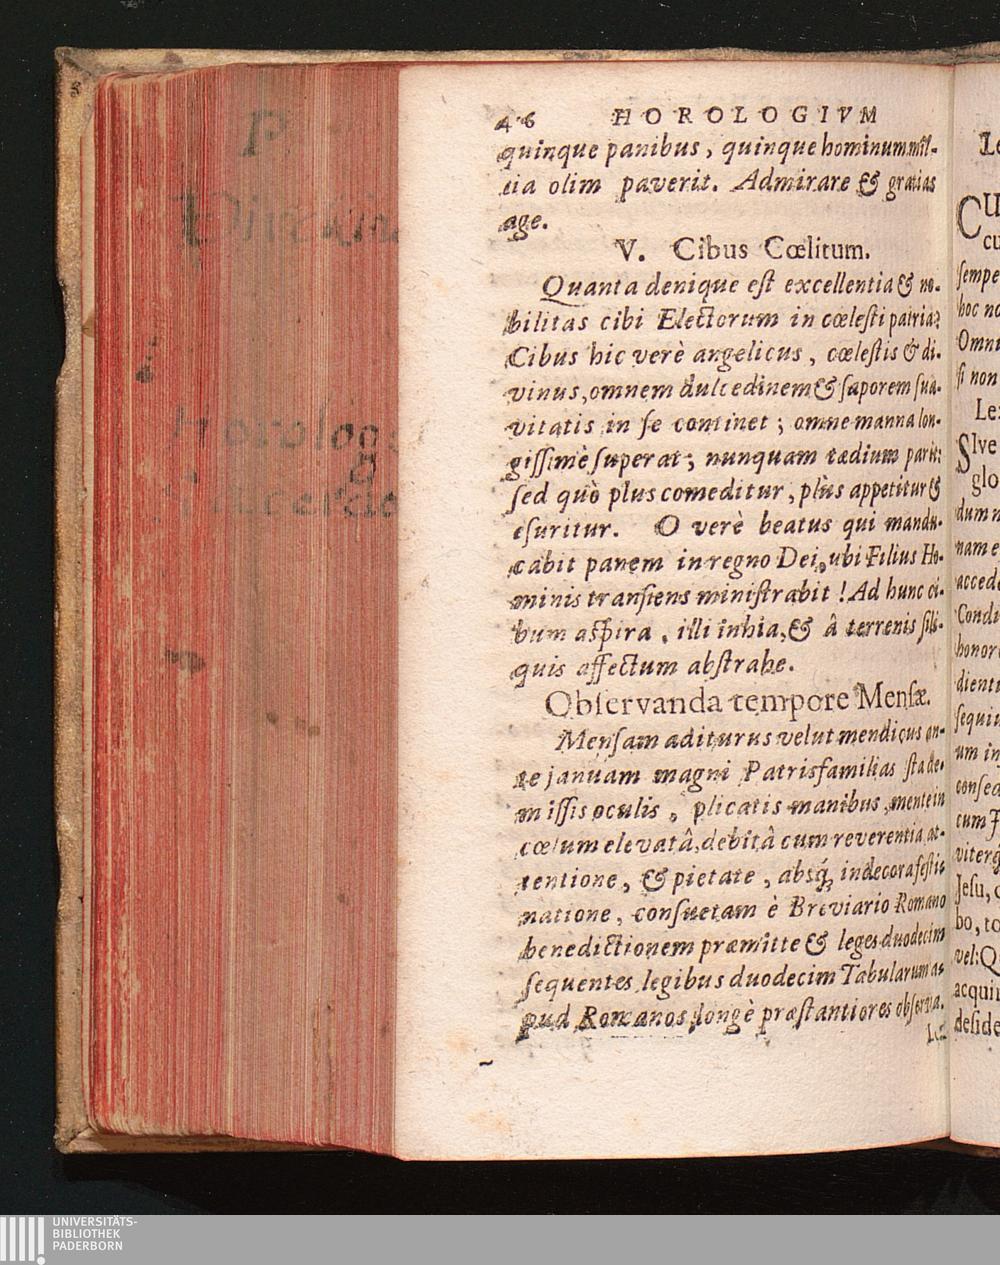 46 HOROLOGIVM
quinque panibus, quinque hominum mil-
lia olim paverit. Admirare & gratias
age.
V. Cibus Cœlitum.
Quanta denique eſt excellentia & no-
bilitas cibi Electorum in cœleſti patria?
Cibus hic verè angelicus, cœleſtis & di-
vinus, omnem dulcedinem & ſaporem ſua-
vitatis in ſe continet; omne manna lon-
giſſimè ſuperat; nunquam tædium parit:
ſed quò plus comeditur, plus appetitur &
eſuritur. O verè beatus qui mandu-
cabit panem in regno Dei, ubi Filius Ho-
minis tranſiens miniſtrabit! Ad hunc ci-
bum aſpira, illi inhia, & â terrenis ſili-
quis affectum abſtrahe.
Obſervanda tempore Menſæ.
Menſam aditurus velut mendicus an-
te januam magni Patrisfamilias ſta de-
miſſis oculis, plicatis manibus, mente in
cœlum elevatâ, debitâ cum reverentia, at-
tentione, & pietate, absq́; indecora feſti-
natione, conſuetam è Breviario Romano
benedictionem præmitte & leges duodecim
ſequentes legibus duodecim Tabularum a-
pud Romanos longè præſtantiores obſerva.
Lex
Cu
cu
ſempe
hoc no
Omni
ſi non
Le
SIve
glo
dum n
nam e
accede
Condi
honor
dienti
ſequi
um in
conſe
cum
viterq́
Jeſu,
bo, to
vel: Q
acqui
deſide
P
Horolog
UNIVERSITÄTS-
BIBLIOTHEK
PADERBORN